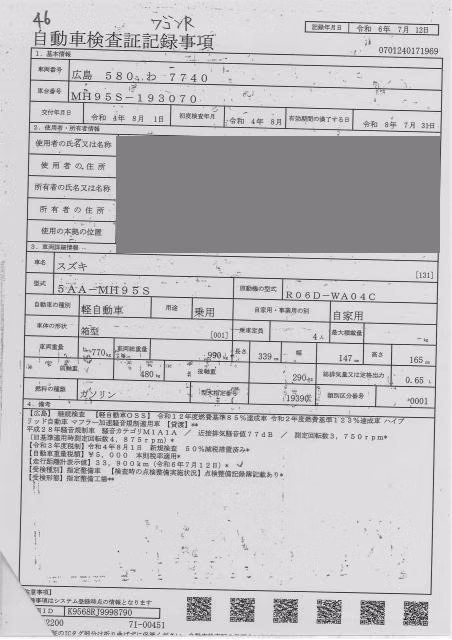 46
ワゴンR
自動車検査証記録事項
記録年月日 令和 6年 7月 12日
0701240171969
1. 基本情報
車両番号 広島 580 わ 7740
車台番号 MH95S-193070
交付年月日 令和 4年 8月 1日 初度検査年月 令和 4年 8月 有効期間の満了する日 令和 8年 7月 31日
2. 使用者・所有者情報
使用者の氏名又は名称
使用者の住所
所有者の氏名又は名称
所有者の住所
使用の本拠の位置
3. 車両詳細情報
車名 スズキ [131]
型式 5AA-MH95S 原動機の型式 R06D-WA04C
自動車の種別 軽自動車 用途 乗用 自家用・事業用の別 自家用
車体の形状 箱型 [001] 乗車定員 4人 最大積載量 -kg
車両重量 770kg 車両総重量 990kg 長さ 339cm 幅 147cm 高さ 165cm
前軸重 480kg 後軸重 290kg 総排気量又は定格出力 0.65L
燃料の種類 ガソリン 型式指定番号 19390 類別区分番号 0001
4. 備考
【広島】 継続検査 【軽自動車OSS】 令和12年度燃費基準85%達成車 令和2年度燃費基準133%達成車 ハイブ
リッド自動車 マフラー加速騒音規制適用車 【貸渡】**
平成28年騒音規制車 騒音カテゴリM1A1A / 近接排気騒音値77dB / 測定回転数3,750rpm*
(旧基準適用時測定回転数4,875rpm)*
【令和3年度税制】令和4年8月1日 新規検査 50%減税措置済み*
【自動車重量税額】¥5,000 本則税率適用*
【走行距離計表示値】33,900km(令和6年7月12日)*
【受検種別】指定整備車 【検査時の点検整備実施状況】点検整備記録簿記載あり*
【受検形態】指定整備工場**
注意事項】
事項はシステム登録時点の情報となります
ID K9568RJ9998790
2200 71-00451